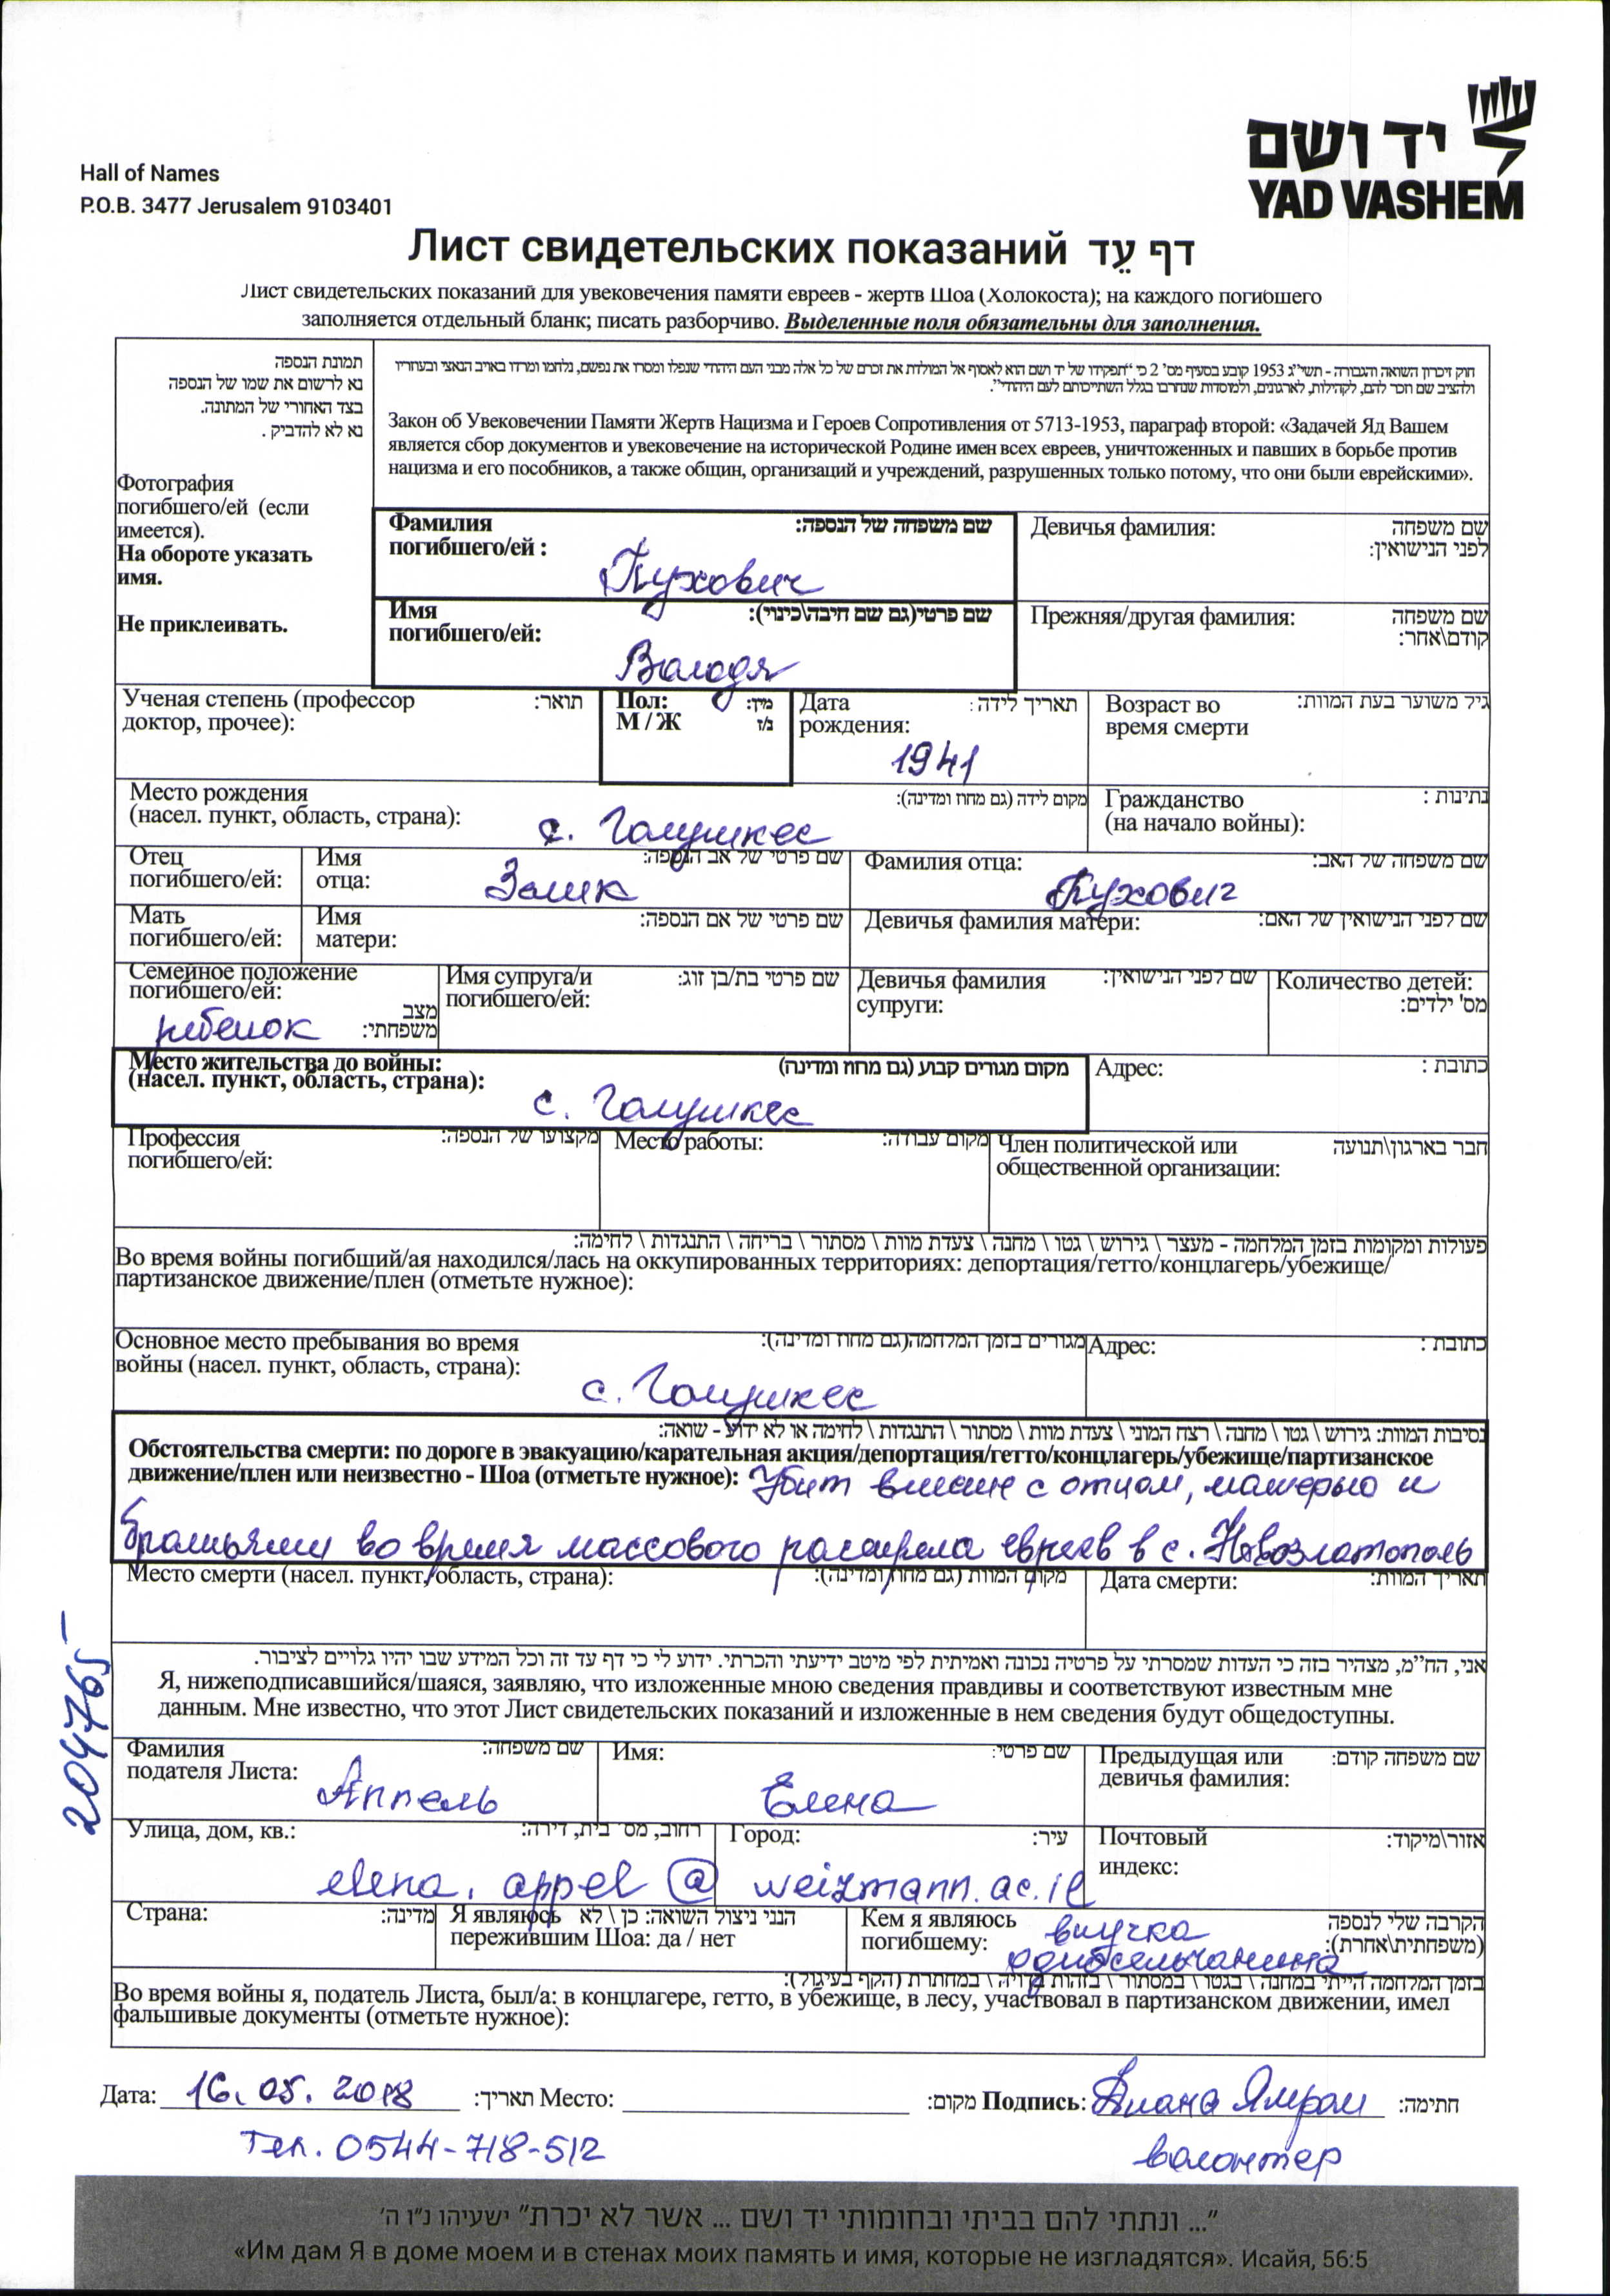 יד ושם
YAD VASHEM
Hall of Names
P.O.B. 3477 Jerusalem 9103401
Лист свидетельских показаний דף עֵד
Лист свидетельских показаний для увековечения памяти евреев - жертв Шоа (Холокоста); на каждого погибшего
заполняется отдельный бланк; писать разборчиво. Выделенные поля обязательны для заполнения.
תמונת הנספה
נא לרשום את שמו של הנספה
בצד האחורי של המתונה.
נא לא להדביק .
Фотография
погибшего/ей (если
имеется).
На обороте указать
имя.
Не приклеивать.
חוק זיכרון השואה והגבורה - תשי"ג 1953 קובע בסעיף מס' 2 כי "תפקידו של יד ושם הוא לאסוף אל המולדת את זכרם של כל אלה מבני העם היהודי שנפלו ומסרו את נפשם, נלחמו ומרדו באויב הנאצי ובעוזריו
ולהציב שם וזכר להם, לקהילות, לארגונים, ולמוסדות שנחרבו בגלל השתייכותם לעם היהודי".
Закон об Увековечении Памяти Жертв Нацизма и Героев Сопротивления от 5713-1953, параграф второй: «Задачей Яд Вашем
является сбор документов и увековечение на исторической Родине имен всех евреев, уничтоженных и павших в борьбе против
нацизма и его пособников, а также общин, организаций и учреждений, разрушенных только потому, что они были еврейскими».
Фамилия погибшего/ей : שם משפחה של הנספה: Пухович
Девичья фамилия: שם משפחה לפני הנישואין:
Имя погибшего/ей: שם פרטי(גם שם חיבה\כינוי): Володя
Прежняя/другая фамилия: שם משפחה קודם\אחר:
Ученая степень (профессор доктор, прочее): תואר:
Пол: М / Ж מין: ז/נ
Дата рождения: תאריך לידה: 1941
Возраст во время смерти גיל משוער בעת המוות:
Место рождения (насел. пункт, область, страна): מקום לידה (גם מחוז ומדינה): с. Галушкес
Гражданство (на начало войны): נתינות :
Отец погибшего/ей: Имя отца: שם פרטי של אב הנספה: Залик
Фамилия отца: שם משפחה של האב: Пухович
Мать погибшего/ей: Имя матери: שם פרטי של אם הנספה:
Девичья фамилия матери: שם לפני הנישואין של האם:
Семейное положение погибшего/ей: מצב משפחתי: ребенок
Имя супруга/и погибшего/ей: שם פרטי בת/בן זוג:
Девичья фамилия супруги: שם לפני הנישואין:
Количество детей: מס' ילדים:
Место жительства до войны: (насел. пункт, область, страна): מקום מגורים קבוע (גם מחוז ומדינה) с. Галушкес
Адрес: כתובת :
Профессия погибшего/ей: מקצועו של הנספה:
Место работы: מקום עבודה:
Член политической или общественной организации: חבר בארגון\תנועה
פעולות ומקומות בזמן המלחמה - מעצר \ גירוש \ גטו \ מחנה \ צעדת מוות \ מסתור \ בריחה \ התנגדות \ לחימה:
Во время войны погибший/ая находился/лась на оккупированных территориях: депортация/гетто/концлагерь/убежище/
партизанское движение/плен (отметьте нужное):
Основное место пребывания во время войны (насел. пункт, область, страна): מגורים בזמן המלחמה(גם מחוז ומדינה): с. Галушкес
Адрес: כתובת :
נסיבות המוות: גירוש \ גטו \ מחנה \ רצח המוני \ צעדת מוות \ מסתור \ התנגדות \ לחימה או לא ידוע - שואה:
Обстоятельства смерти: по дороге в эвакуацию/карательная акция/депортация/гетто/концлагерь/убежище/партизанское
движение/плен или неизвестно - Шоа (отметьте нужное): Убит вместе с отцом, матерью и
братьями во время массового расстрела евреев в с. Новозлатополь
Место смерти (насел. пункт, область, страна): מקום המוות (גם מחוז ומדינה):
Дата смерти: תאריך המוות:
אני, הח"מ, מצהיר בזה כי העדות שמסרתי על פרטיה נכונה ואמיתית לפי מיטב ידיעתי והכרתי. ידוע לי כי דף עד זה וכל המידע שבו יהיו גלויים לציבור.
Я, нижеподписавшийся/шаяся, заявляю, что изложенные мною сведения правдивы и соответствуют известным мне
данным. Мне известно, что этот Лист свидетельских показаний и изложенные в нем сведения будут общедоступны.
204765
Фамилия подателя Листа: שם משפחה: Аппель
Имя: שם פרטי: Елена
Предыдущая или девичья фамилия: שם משפחה קודם:
Улица, дом, кв.: רחוב, מס' בית, דירה:
Город: עיר:
Почтовый индекс: אזור\מיקוד:
elena.appel@weizmann.ac.il
Страна: מדינה:
Я являюсь пережившим Шоа: да / нет הנני ניצול השואה: כן \ לא
Кем я являюсь погибшему: הקרבה שלי לנספה (משפחתית\אחרת): внучка односельчанина
בזמן המלחמה הייתי במחנה \ בגטו \ במסתור \ בזהות בדויה \ במחתרת (הקף בעיגול):
Во время войны я, податель Листа, был/а: в концлагере, гетто, в убежище, в лесу, участвовал в партизанском движении, имел
фальшивые документы (отметьте нужное):
Дата: 16.05.2018 תאריך: Место: מקום: Подпись: Диана Ямрам חתימה:
Тел. 0544-718-512
волонтер
"... ונתתי להם בביתי ובחומותי יד ושם ... אשר לא יכרת" ישעיהו נ"ו ה'
«Им дам Я в доме моем и в стенах моих память и имя, которые не изгладятся». Исайя, 56:5